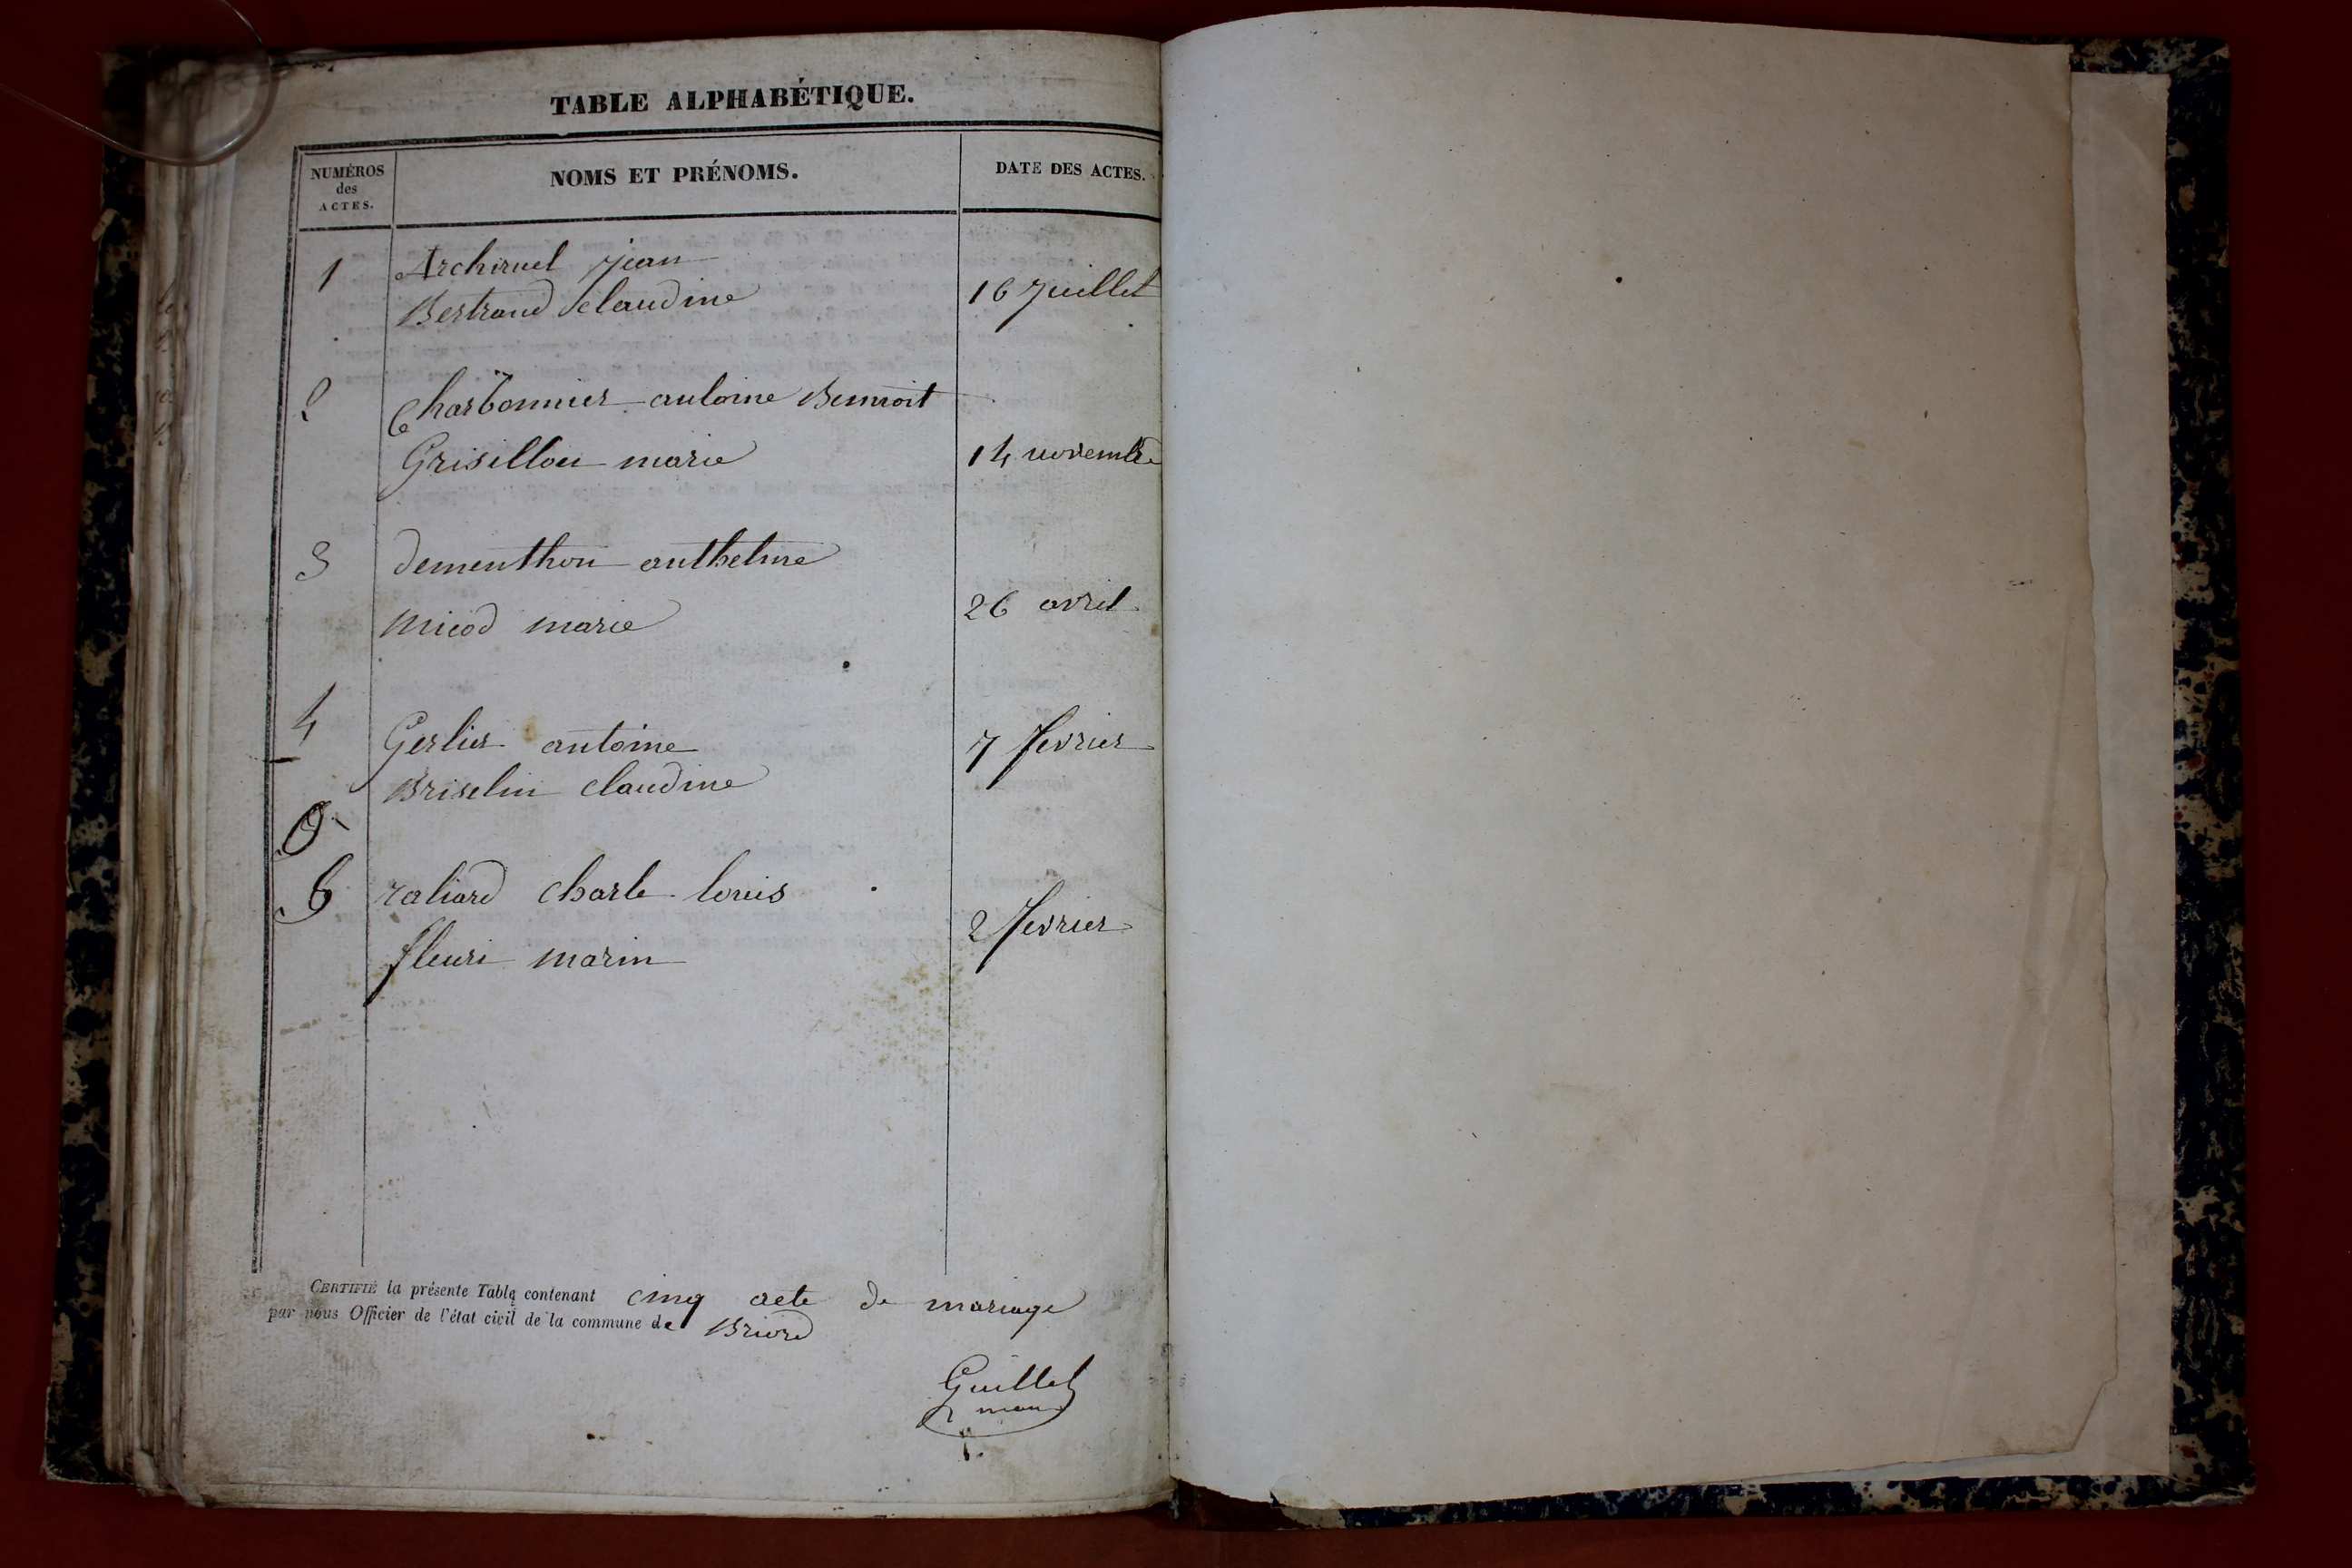 TABLE ALPHABÉTIQUE.
NUMÉROS des ACTES.
NOMS ET PRÉNOMS.
DATE DES ACTES.
1 Archiruel jean
Bertrand Claudine 16 Juillet
2 Charbonnier antoine Bennoit
Grisillon marie 14 novembre
3 dementhon anthelme
micod marie 26 avril
4 Gerlier antoine 7 fevrier
Briselin claudine
5 raliard charle louis
fleuri marin 2 fevrier
CERTIFIÉ la présente Table contenant cinq acte de mariage
par nous Officier de l'état civil de la commune de Briord
Guillet